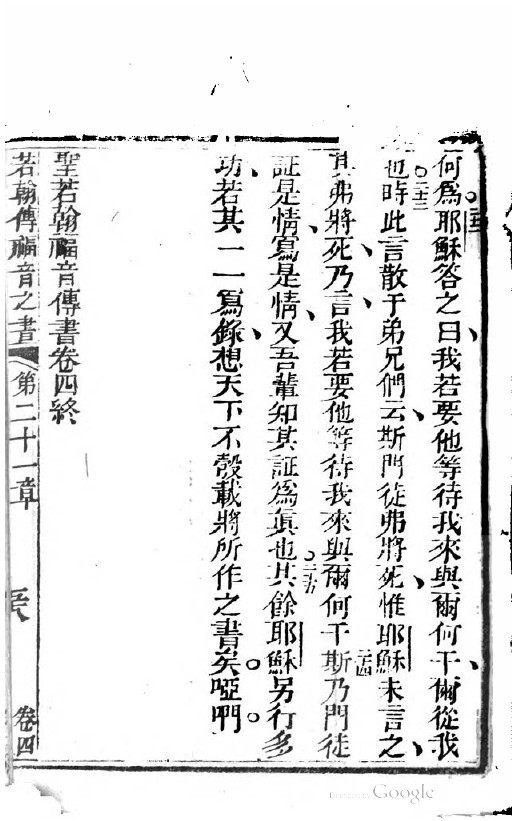 何為耶穌答之曰我若要他等待我來與爾何干爾從我
也二十三時此言散于弟兄們云斯門徒弗將死惟耶穌未言之
其弗將死乃言我若要他等待我來與爾何干二十四斯乃門徒
証是情寫是情又吾輩知其証為眞也二十五其餘耶穌另行多
功若其一一寫錄想天下不彀載將所作之書矣啞們
聖若翰福音傳書卷四終
若翰傳福音之書 第二十一章 卷四
Google